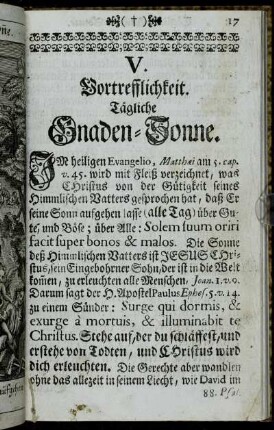 ( † ) 17
V.
Vortrefflichkeit.
Tägliche
Gnaden-Sonne.
IM heiligen Evangelio, Matthæi am 5. cap.
v. 45. wird mit Fleiß verzeichnet, was
CHristus von der Gütigkeit seines
Himmlischen Vatters gesprochen hat, daß Er
seine Sonn aufgehen lasse (alle Tag) über Gu-
te, und Böse; über Alle: Solem suum oriri
facit super bonos & malos. Die Sonne
deß Himmlischen Vatters ist JESUS CHri-
stus, sein Eingebohrner Sohn, der ist in die Welt
kommen, zu erleuchten alle Menschen. Joan. 1. v. 9.
Darum sagt der H. Apostel Paulus Ephes. 5. v. 14.
zu einem Sünder: Surge qui dormis, &
exurge à mortuis, & illuminabit te
Christus. Stehe auf, der du schläffest, und
erstehe von Todten, und CHristus wird
dich erleuchten. Die Gerechte aber wandlen
ohne das allezeit in seinem Liecht, wie David im
88. Psal.